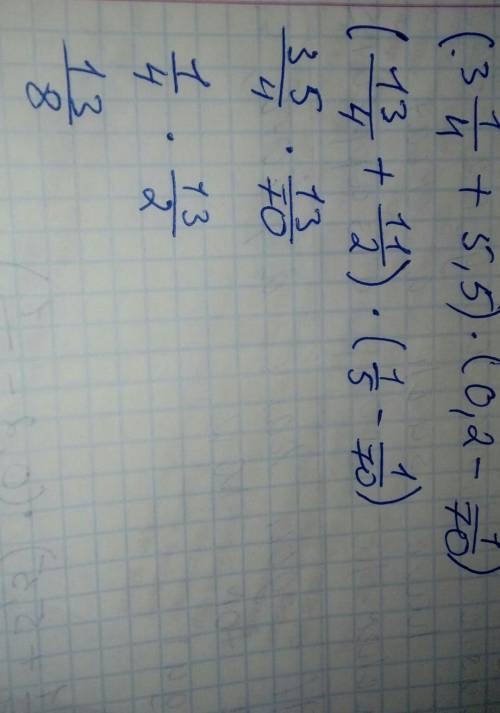 (3 1/4 + 5,5) · (0,2 - 1/70)
(13/4 + 11/2) · (1/5 - 1/70)
35/4 · 13/70
1/4 · 13/2
13/8